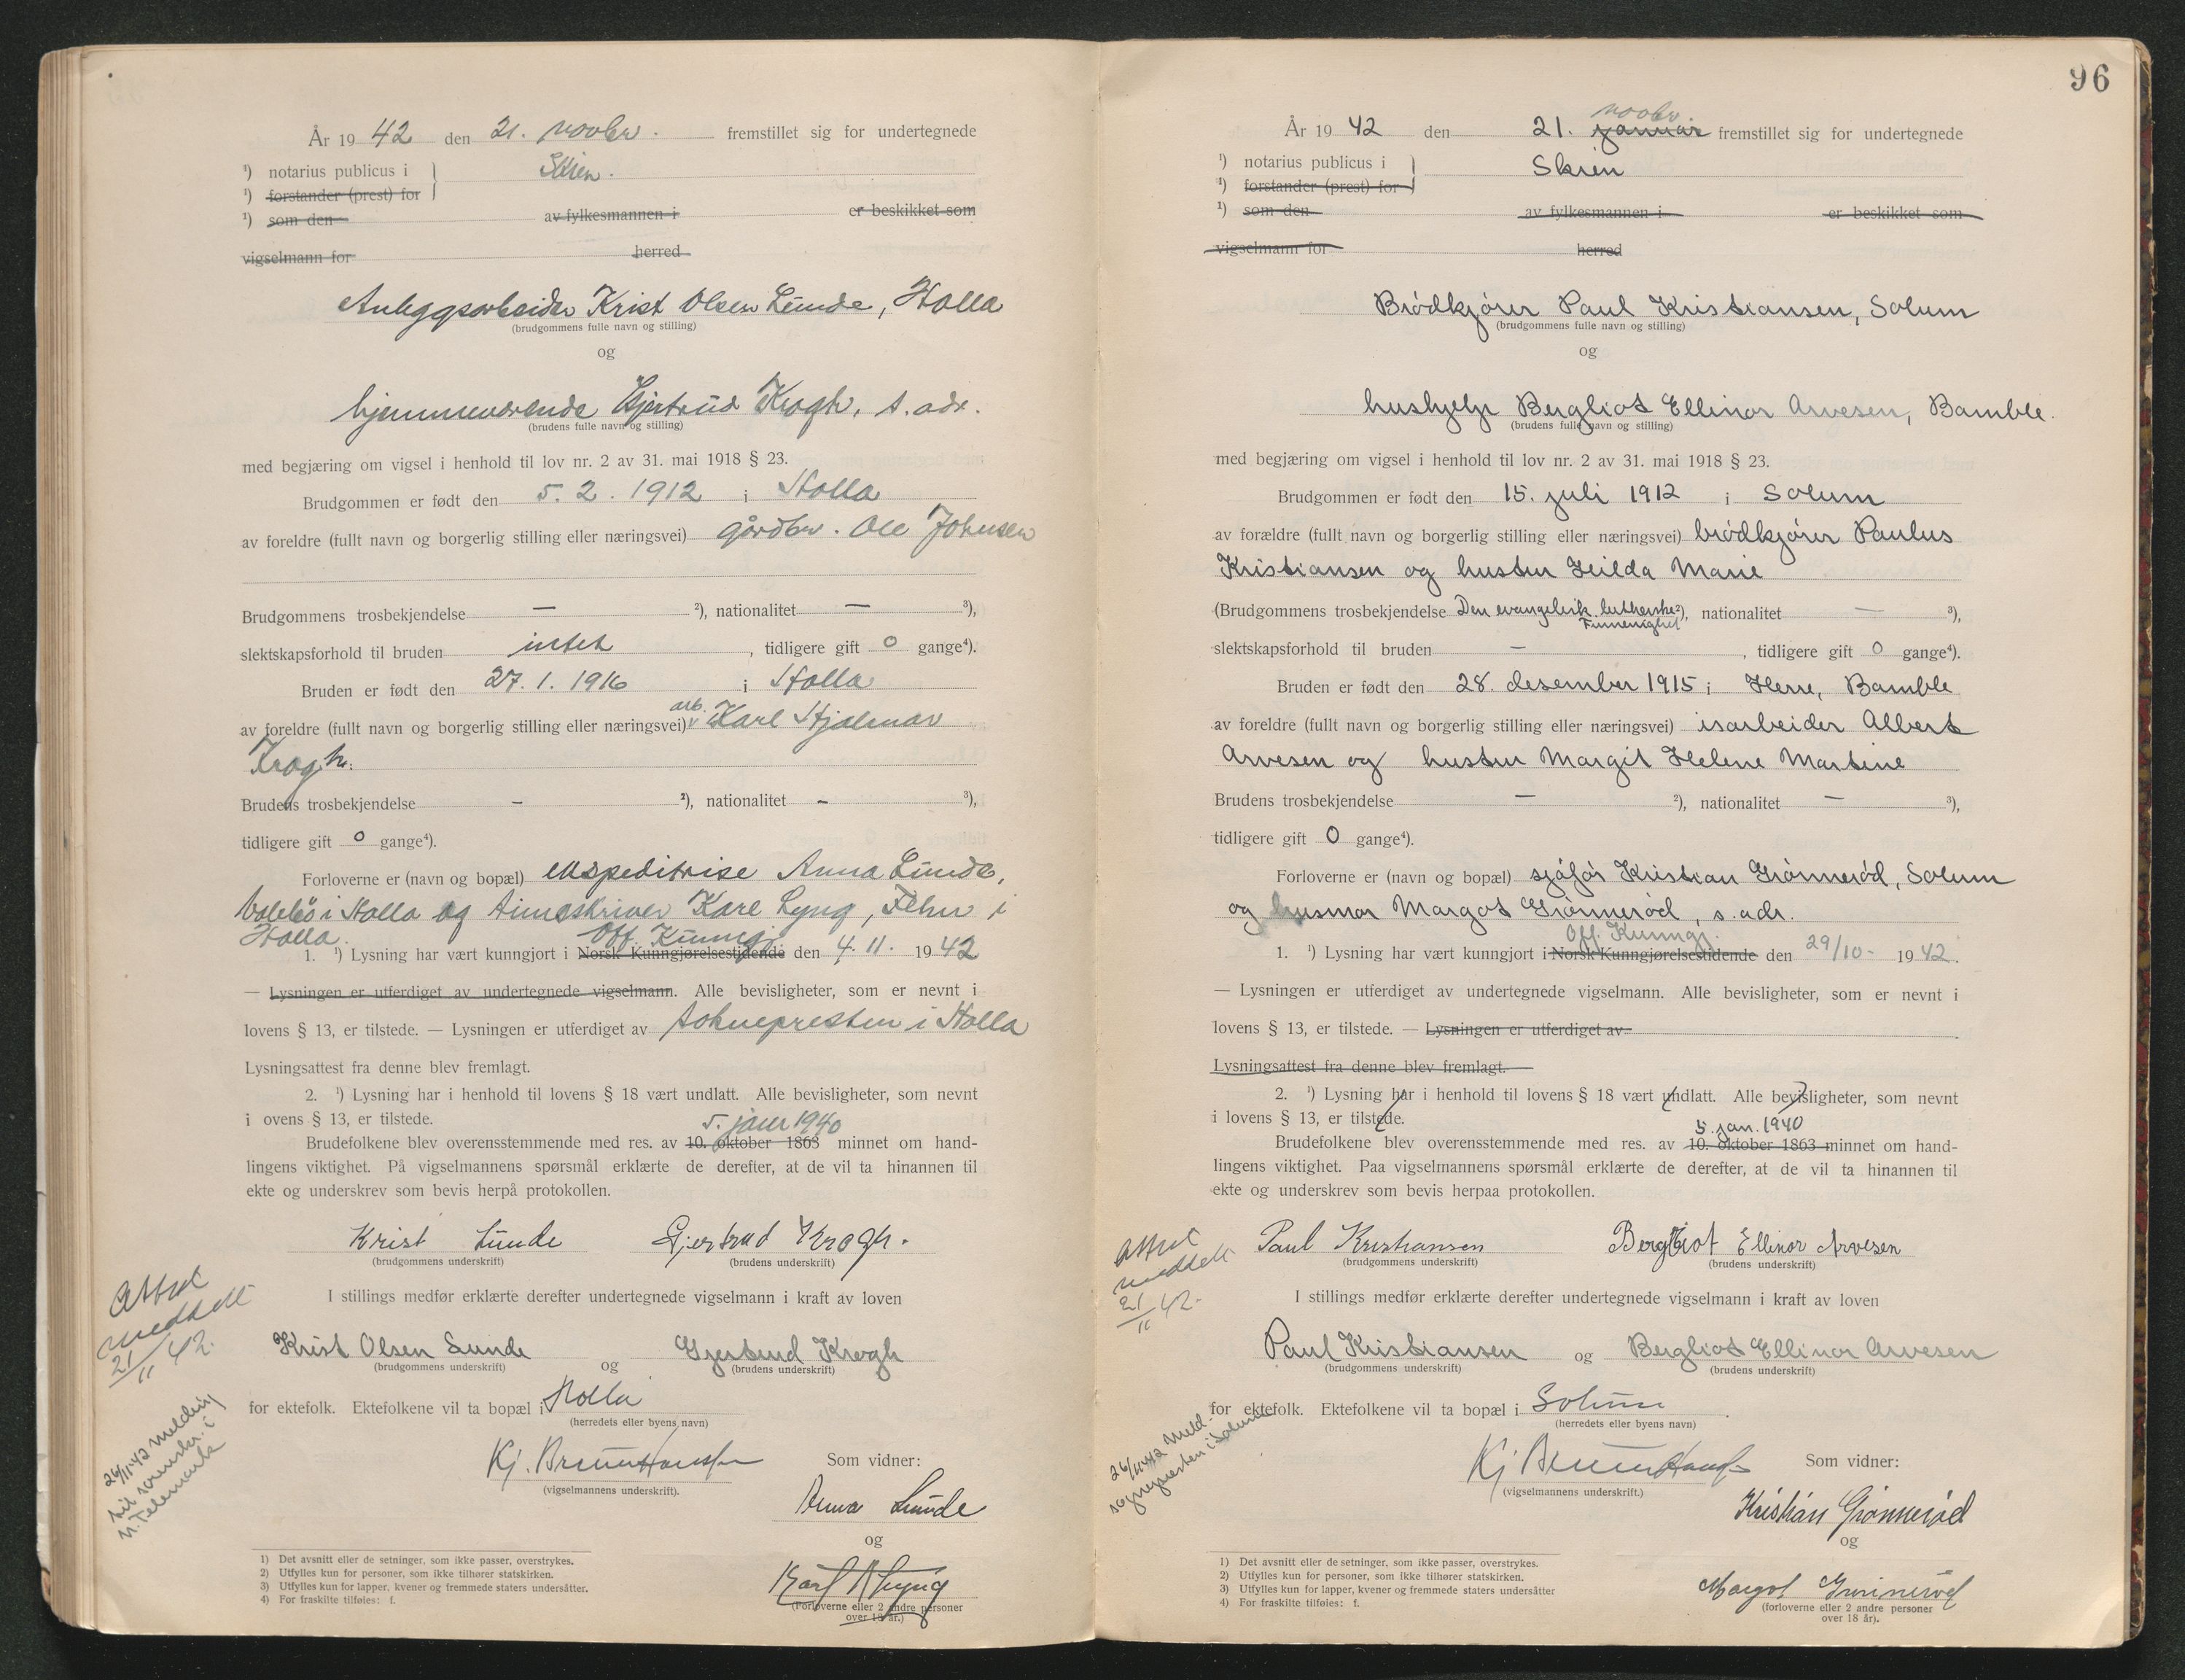 År 19 42 den 21. novbr. fremstillet sig for undertegnede
¹) notarius publicus i Skien.
¹) forstander (prest) for
¹) som den av fylkesmannen i er beskikket som
vigselmann for herred
Anleggsarbeider Krist Olsen Lunde, Holla
(brudgommens fulle navn og stilling)
og
hjemmeværende Gjertrud Krogh, s. adr.
(brudens fulle navn og stilling)
med begjæring om vigsel i henhold til lov nr. 2 av 31. mai 1918 § 23.
Brudgommen er født den 5. 2. 1912 i Holla
av foreldre (fullt navn og borgerlig stilling eller næringsvei) gårdbr. Ole Johnsen
Brudgommens trosbekjendelse — ²), nationalitet — ³),
slektskapsforhold til bruden intet, tidligere gift 0 gange⁴).
Bruden er født den 27. 1. 1916 i Holla
av foreldre (fullt navn og borgerlig stilling eller næringsvei) arb. Karl Hjalmar
Krogh.
Brudens trosbekjendelse - ²), nationalitet - ³),
tidligere gift 0 gange⁴).
Forloverne er (navn og bopæl) ekspeditrise Anna Lunde,
i Holla og timeskriver Kare Lyng, Fehn i
Holla.
Off. Kunngj.
1. ¹) Lysning har vært kunngjort i Norsk Kunngjørelsestidende den 4. 11. 1942
— Lysningen er utferdiget av undertegnede vigselmann. Alle bevisligheter, som er nevnt i
lovens § 13, er tilstede. — Lysningen er utferdiget av sokneprestem i Holla
Lysningsattest fra denne blev fremlagt.
2. ¹) Lysning har i henhold til lovens § 18 vært undlatt. Alle bevisligheter, som nevnt
i ovens § 13, er tilstede.
5. jan 1940
Brudefolkene blev overensstemmende med res. av 10. oktober 1863 minnet om hand-
lingens viktighet. På vigselmannens spørsmål erklærte de derefter, at de vil ta hinannen til
ekte og underskrev som bevis herpå protokollen.
Krist Lunde Gjertrud Krogh.
(brudgommens underskrift) (brudens underskrift)
I stillings medfør erklærte derefter undertegnede vigselmann i kraft av loven
Attest
meddelt
21/11 42.
Krist Olsen Lunde og Gjertrud Krogh
(brudgommens underskrift) (brudens underskrift)
for ektefolk. Ektefolkene vil ta bopæl i Holla
(herredets eller byens navn)
26/11-42 melding
til sorenskr. i
N. Telemark
Kj. Bruun Hanssen Som vidner:
(vigselmannens underskrift).
Anna Lunde
og
Kåre Lyng
(Forloverne eller 2 andre personer
over 18 år.)
1) Det avsnitt eller de setninger, som ikke passer, overstrykes.
2) Utfylles kun for personer, som ikke tilhører statskirken.
3) Utfylles kun for lapper, kvener og fremmede staters undersåtter.
4) For fraskilte tilføies: f.
96
novbr.
År 19 42 den 21. januar fremstillet sig for undertegnede
¹) notarius publicus i Skien
¹) forstander (prest) for
¹) som den av fylkesmannen i er beskikket som
vigselmann for herred
Brödkjörer Paul Kristiansen, Solum
(brudgommens fulle navn og stilling)
og
hushjelp Bergliot Ellinor Arvesen, Bamble.
(brudens fulle navn og stilling)
med begjæring om vigsel i henhold til lov nr. 2 av 31. mai 1918 § 23.
Brudgommen er født den 15. juli 1912 i Solum
av forældre (fullt navn og borgerlig stilling eller næringsvei) brödkjörer Paulus
Kristiansen og hustru Hilda Marie
(Brudgommens trosbekjendelse Den evangelisk lutherske ²), nationalitet — ³),
Frimenighet
slektskapsforhold til bruden -, tidligere gift 0 gange⁴).
Bruden er født den 28. desember 1915 i Herre, Bamble
av foreldre (fullt navn og borgerlig stilling eller næringsvei) isarbeider Albert
Arvesen og hustru Margit Helene Martine
Brudens trosbekjendelse — ²), nationalitet — ³),
tidligere gift 0 gange⁴).
Forloverne er (navn og bopæl) sjåfór Kristian Grönneröd, Solum
og husmor Margot Grönneröd, s. adr.
Off. Kunngj.
1. ¹) Lysning har vært kunngjort i Norsk Kunngjørelsestidende den 29/10- 1942.
— Lysningen er utferdiget av undertegnede vigselmann. Alle bevisligheter, som er nevnt i
lovens § 13, er tilstede. — Lysningen er utferdiget av
Lysningsattest fra denne blev fremlagt.
2. ¹) Lysning har i henhold til lovens § 18 vært undlatt. Alle bevisligheter, som nevnt
i lovens § 13, er tilstede.
5. jan. 1940
Brudefolkene blev overensstemmende med res. av 10. oktober 1863 minnet om hand-
lingens viktighet. Paa vigselmannens spørsmål erklærte de derefter, at de vil ta hinannen til
ekte og underskrev som bevis herpaa protokollen.
Attest
meddelt
21/11 42.
Paul Kristiansen Bergliot Ellinor Arvesen
(brudgommens underskrift) (brudens underskrift)
I stillings medfør erklærte derefter undertegnede vigselmann i kraft av loven
Paul Kristiansen og Bergliot Ellinor Arvesen
(brudgommens underskrift) (brudens underskrift)
for ektefolk. Ektefolkene vil ta bopæl i Solum
(herredets eller byens navn)
26/11-42 meld.
sognepresten i Solum
Kj Bruun Hanssen Som vidner:
(vigselmannens underskrift.)
Kristian Grönneröd
og
Margot Grönneröd
(forloverne eller 2 andre personer
over 18 år).
1) Det avsnitt eller de setninger, som ikke passer, overstrykes.
2) Utfylles kun for personer, som ikke tilhører statskirken.
3) Utfylles kun for lapper, kvener og fremmede staters undersåtter
4) For fraskilte tilføies: f.